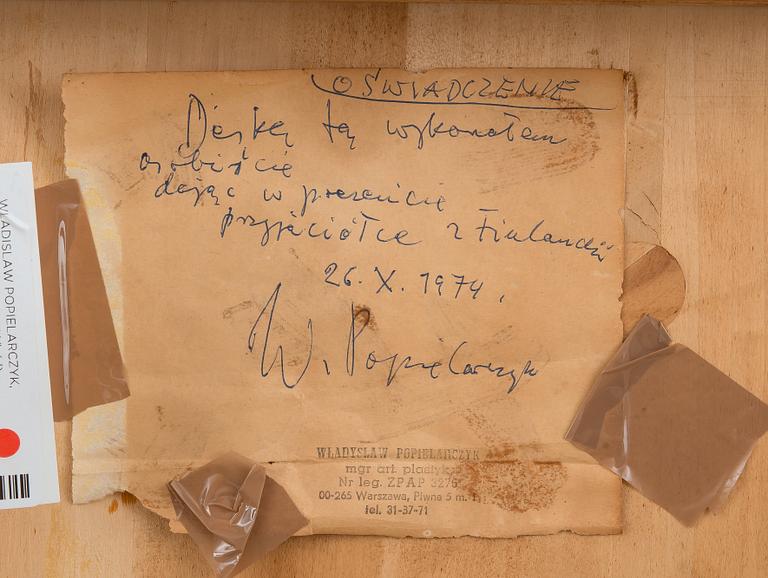 OŚWIADCZENIE
Deskę tę wykonałem
osobiście
dając w prezencie
przyjaciółce z Finlandii
26. X. 1974.
W. Popielarczyk
WŁADYSŁAW POPIELARCZYK
mgr art. plastyk
Nr leg. ZPAP 3276
00-265 Warszawa, Piwna 5 m.
tel. 31-37-71
WŁADISLAW POPIELARCZYK,